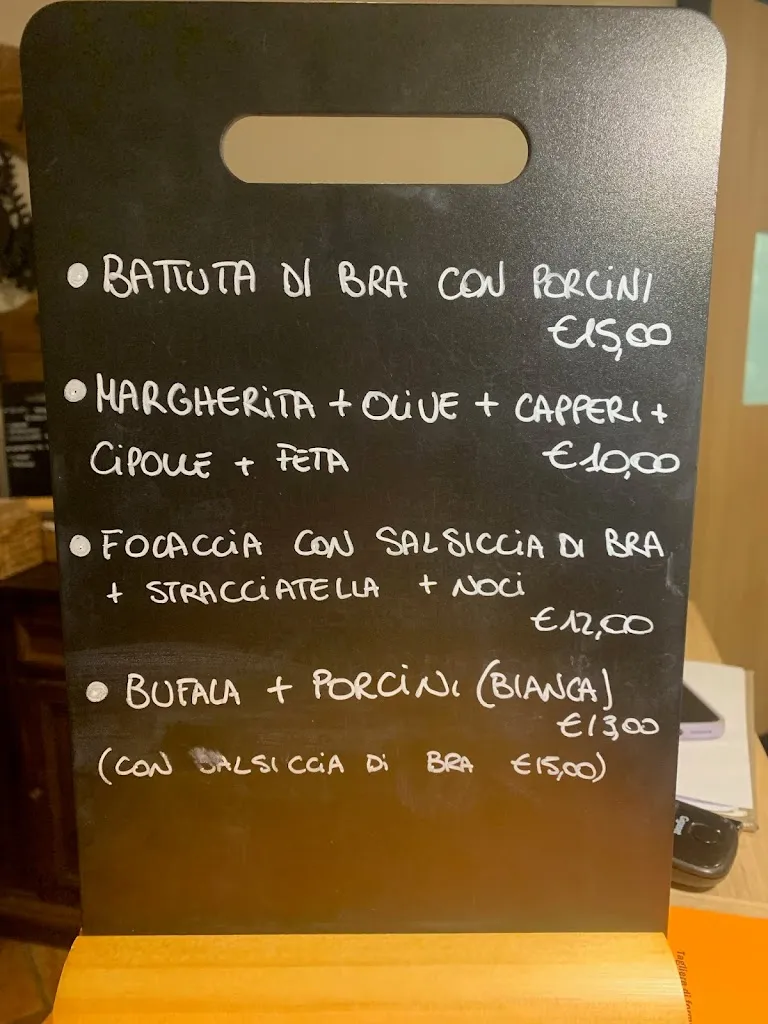 • BATTUTA DI BRA CON PORCINI
€15,00
• MARGHERITA + OLIVE + CAPPERI +
CIPOLLE + FETA €10,00
• FOCACCIA CON SALSICCIA DI BRA
+ STRACCIATELLA + NOCI
€12,00
• BUFALA + PORCINI (BIANCA)
€13,00
(CON SALSICCIA DI BRA €15,00)